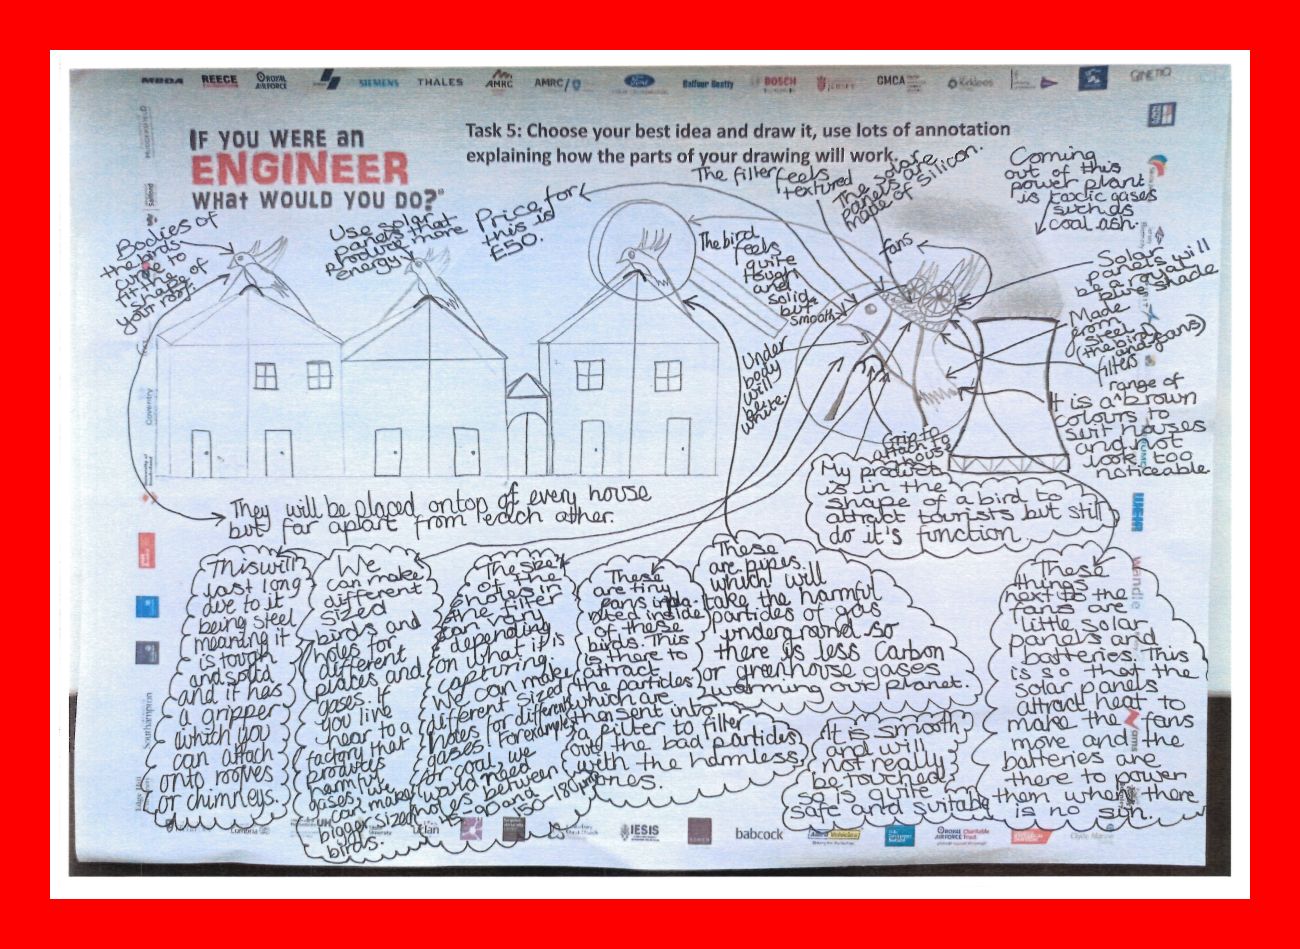 MBDA
REECE
ROYAL AIR FORCE
SIEMENS
THALES
AMRC
AMRC/
Ford
Balfour Beatty
BOSCH
GMCA
Kirklees
QINETIQ
IF YOU WERE an
ENGINEER
WHaT WOULD YOU DO?
Task 5: Choose your best idea and draw it, use lots of annotation
explaining how the parts of your drawing will work.
Bodies of
the birds
curve to
fit the
shape of
your roof.
Use solar
panels that
produce more
energy
Price for
this is
£50.
The filter feels
textured
The solar
panels are
made of silicon.
Coming
out of this
power plant
is toxic gases
such as
coal ash.
fans
The bird
feels
quite
tough
and
solid
but
smooth
Solar
panels will
be a royal
blue shade
Made
from
steel
(the bird)
and fans)
filters
Under
body
will
be
white.
range of
It is a brown
colours to
suit houses
and not
look too
noticeable
Grip to
attach to
house
They will be placed ontop of every house
but far apart from each other.
My product
is in the
shape of a bird to
attract tourists but still
do it's function
This will
last long
due to it
being steel
meaning it
is tough
and solid
and it has
a gripper
which you
can attach
onto rooves
or chimneys.
We
can make
different
sized
birds and
holes for
different
plates and
gases. if
you live
near to a
factory that
produces
harmful
gases, we
can make
bigger sized
birds.
The size
of the
holes in
the filter
can vary
depending
on what it is
capturing.
We can make
different sized
holes for different
gases! For example,
for coal, we
would need
holes between
45-90 and
150-180µm
These
are tiny
fans
inside
of these
birds. This
is there to
attract
the particles
which are
then sent into
a filter to filter
out the bad particles
with the harmless
ones.
These
are pipes
which will
take the harmful
particles of gas
underground so
there is less Carbon
or greenhouse gases
warming our planet.
It is smooth
and will
not really
be touched
so is quite
safe and suitable
These
things
next to the
fans are
little solar
panels and
batteries. This
is so that the
solar panels
attract heat to
make the fans
move and the
batteries are
there to power
them when there
is no sun.
Coventry
Southampton
Cumbria
uclan
IESIS
babcock
ROYAL AIR FORCE